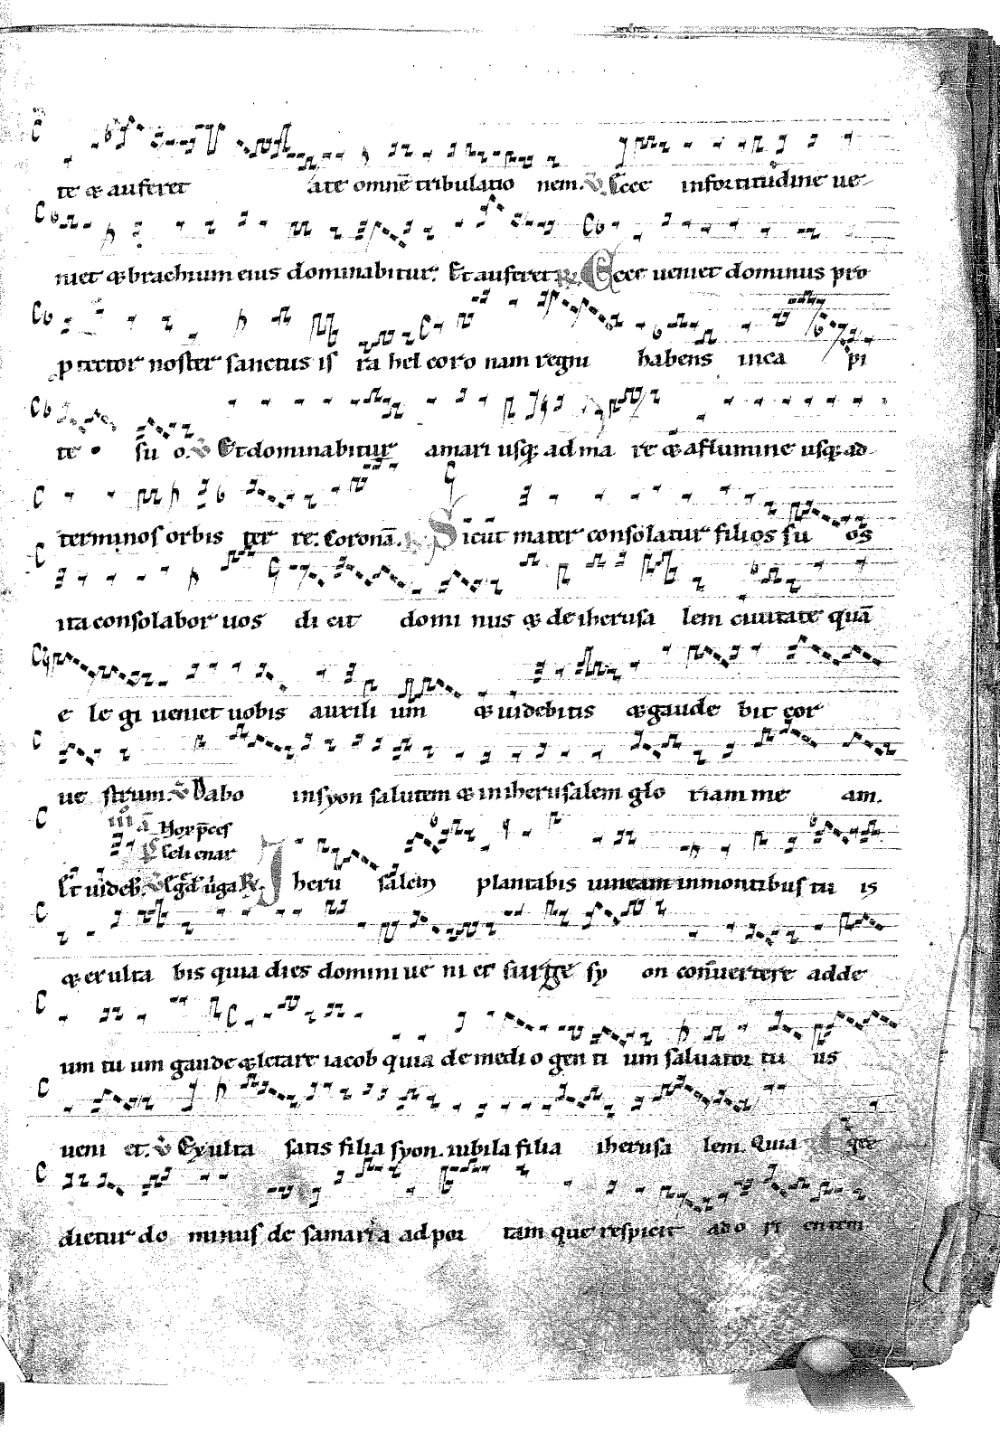 te & auferet a te omnē tribulatio nem. V̄ Ecce infortitudine ue-
niet & brachium eius dominabitur. Et auferet R. Ecce ueniet dominus pro
tector noster sanctus is ra hel coro nam regni habens inca pi
te suo. V̄ Et dominabitur amari usq; ad ma re & aflumine usq; ad
terminos orbis ter re: Coronā. R. Sicut mater consolatur filios su os
ita consolabor uos di cit domi nus & de iherusa lem ciuitate quā
e le gi ueniet uobis auxili um & uidebitis & gaude bit cor
ue strum. V̄ Dabo insyon salutem & in iherusalem glo riam me am.
Et uideb. R. Iheru salem plantabis uineam inmontibus tu is
& exulta bis quia dies domini ue ni et surge sy on conuertere ad de
um tu um gaude & letare iacob quia de medi o gen ti um saluator tu us
ueni et. V̄ Exulta satis filia syon. iubila filia iherusa lem. Quia Egre
dietur do minus de samaria ad por tam que respicit ad o ri entem